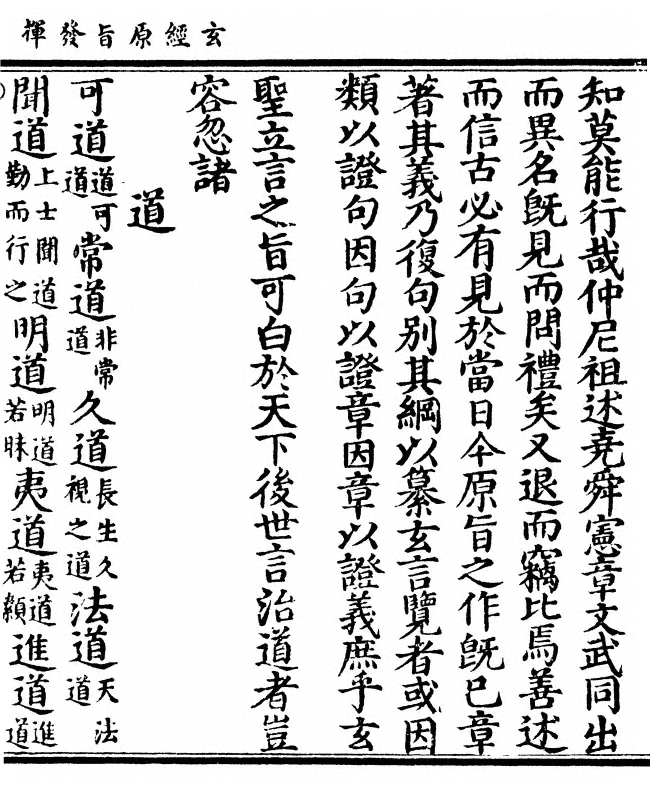 玄經原旨發揮
知莫能行哉仲尼祖述堯舜憲章文武同出
而異名旣見而問禮矣又退而竊比焉善述
而信古必有見於當日今原旨之作旣已章
著其義乃復句別其綱以纂玄言覽者或因
類以證句因句以證章因章以證義庶乎玄
聖立言之旨可白於天下後世言治道者豈
容忽諸
道
可道道可道常道非常道久道長生久視之道法道天法道
聞道上士聞道勤而行之明道明道若昧夷道夷道若纇進道進道